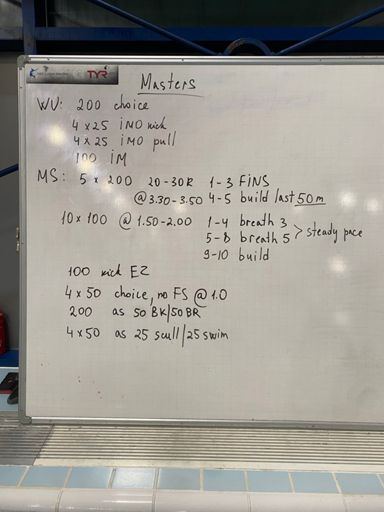 TYR
Masters
WU: 200 choice
4 x 25 iMO kick
4 x 25 iMO pull
100 iM
MS: 5 x 200 20-30R 1-3 FiNS
@3.30-3.50 4-5 build last 50m
10 x 100 @ 1.50-2.00 1-4 breath 3
5-8 breath 5 > steady pace
9-10 build
100 kick EZ
4 x 50 choice, no FS @ 1.0
200 as 50 BK/50 BR
4 x 50 as 25 scull/25 swim